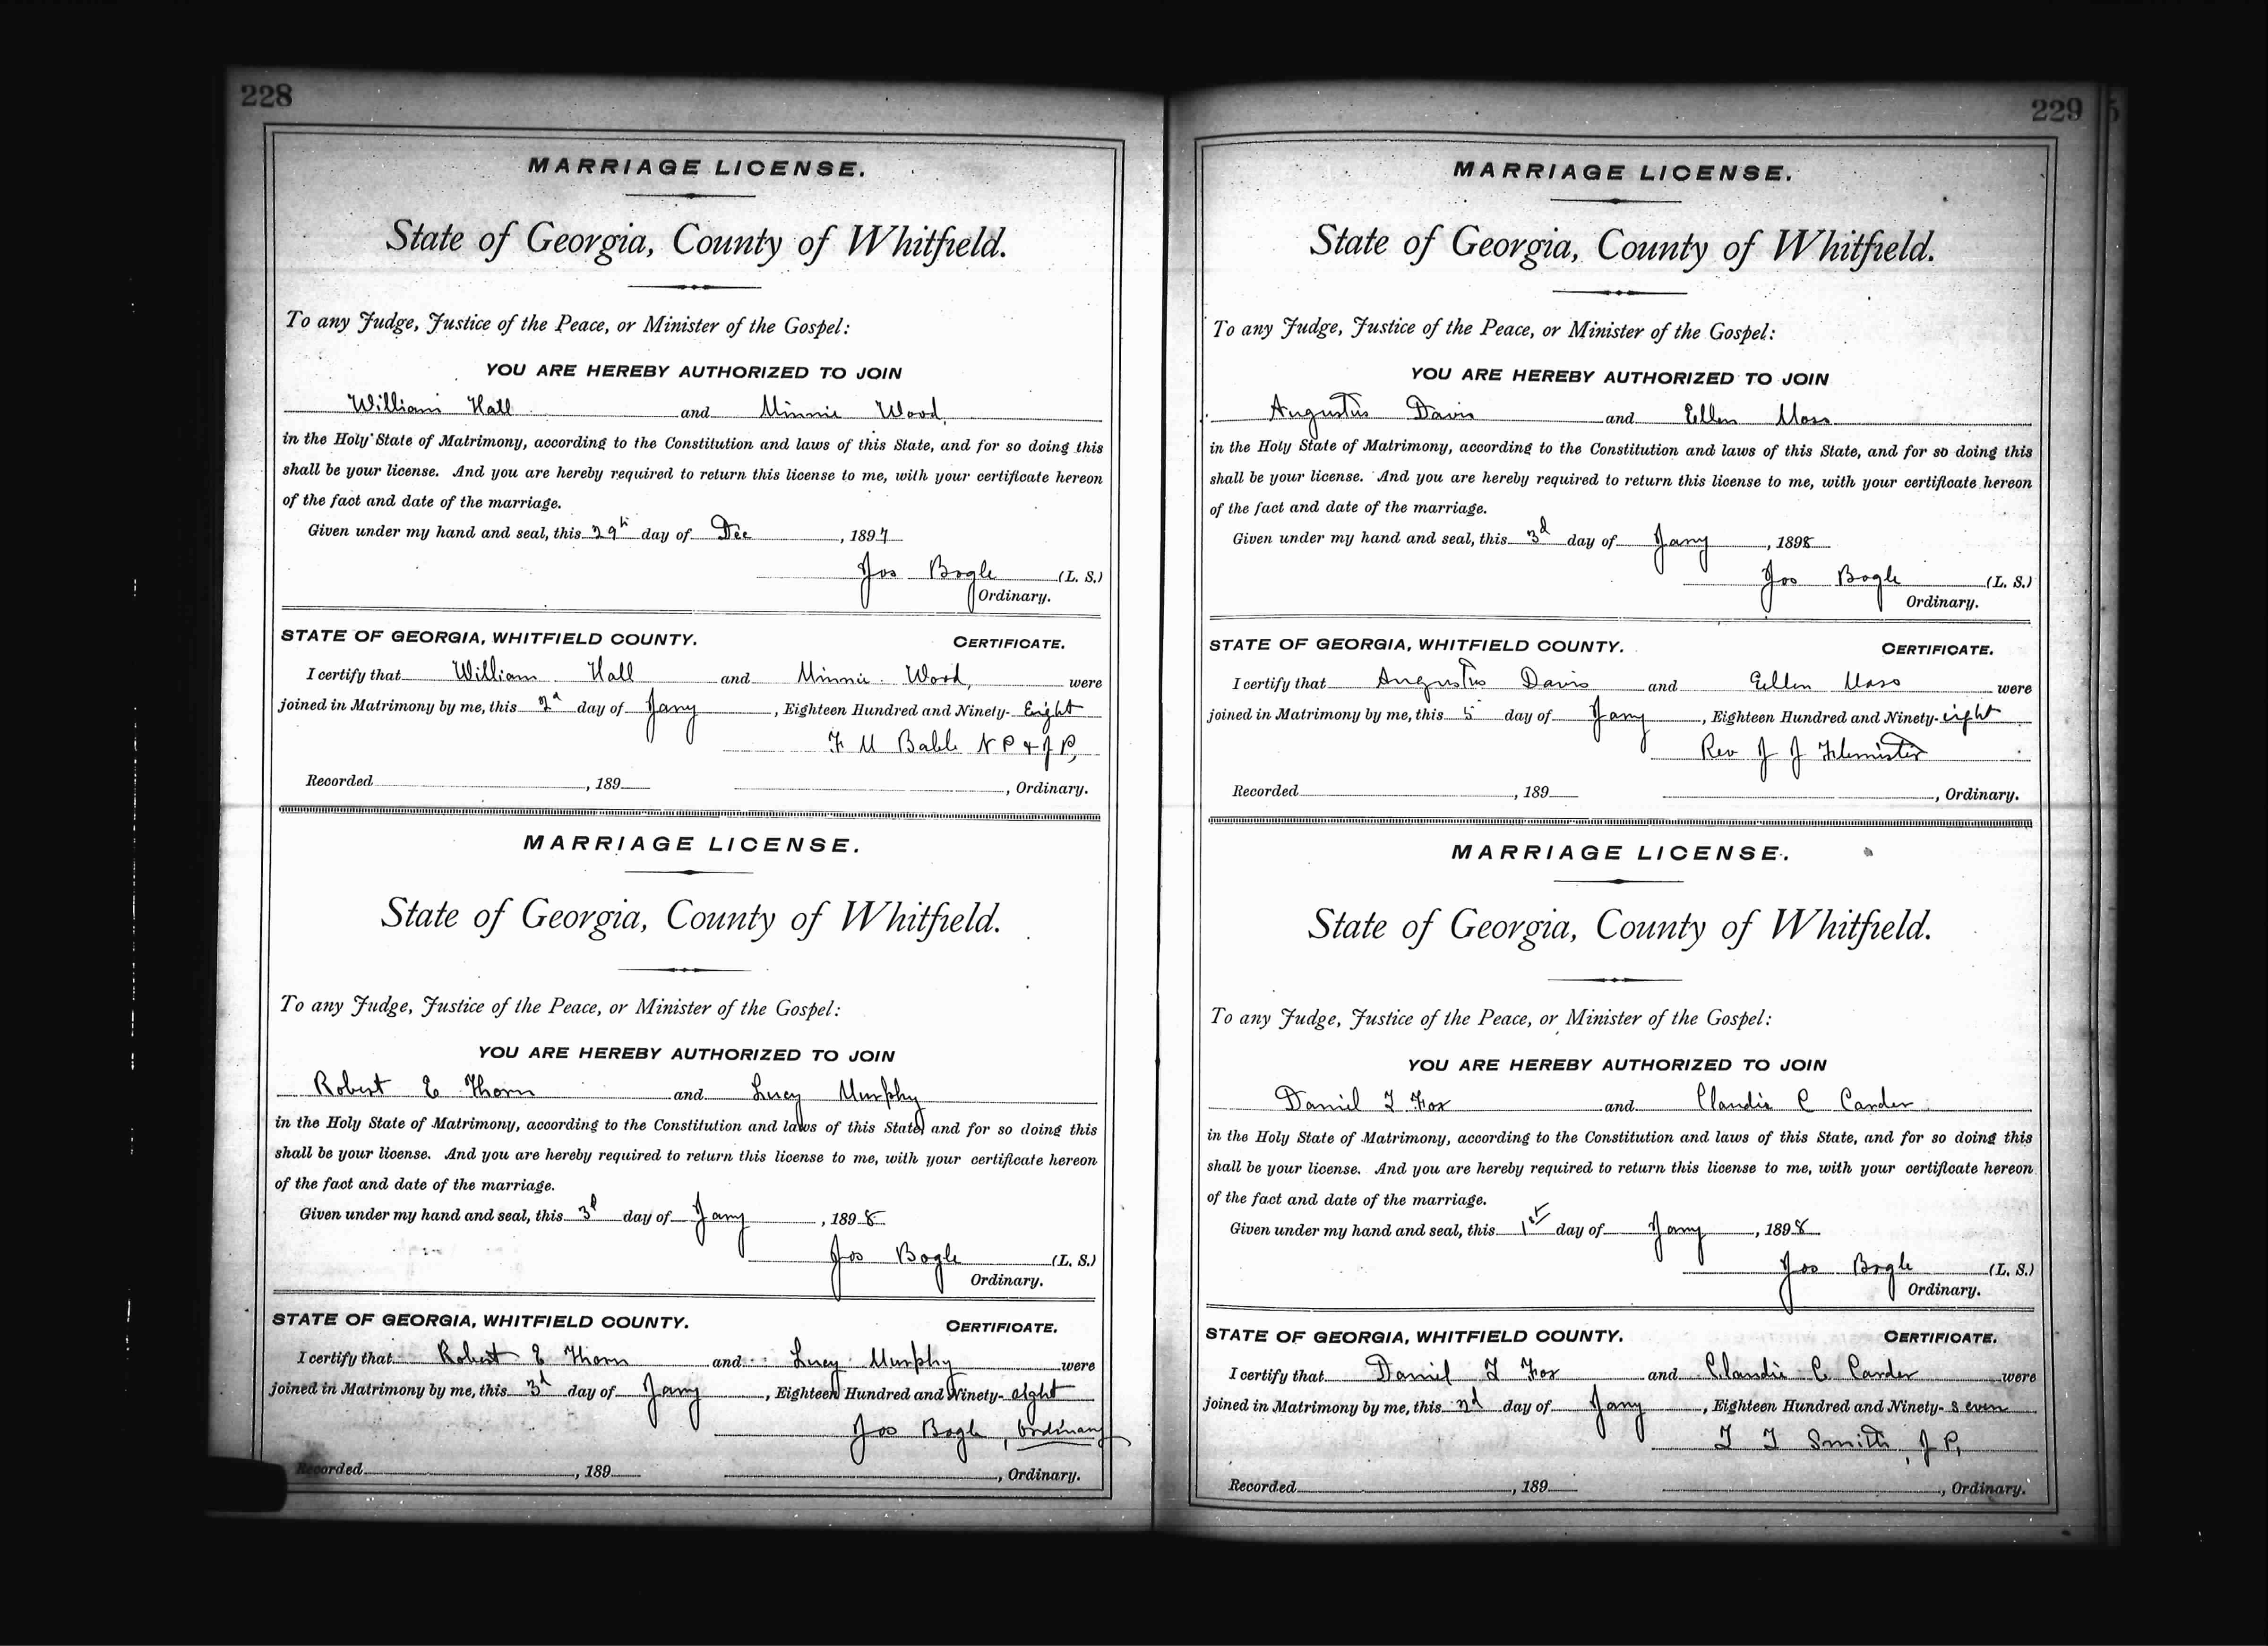 228
MARRIAGE LICENSE.
State of Georgia, County of Whitfield.
To any Judge, Justice of the Peace, or Minister of the Gospel:
YOU ARE HEREBY AUTHORIZED TO JOIN
William Hall and Minnie Wood,
in the Holy State of Matrimony, according to the Constitution and laws of this State, and for so doing this
shall be your license. And you are hereby required to return this license to me, with your certificate hereon
of the fact and date of the marriage.
Given under my hand and seal, this 29th day of Dec , 1897
Jos Bogle (L. S.)
Ordinary.
STATE OF GEORGIA, WHITFIELD COUNTY. CERTIFICATE.
I certify that William Hall and Minnie Wood, were
joined in Matrimony by me, this 2d day of Jany , Eighteen Hundred and Ninety- Eight
F M Babb N P & J P,
Recorded , 189 , Ordinary.
MARRIAGE LICENSE.
State of Georgia, County of Whitfield.
To any Judge, Justice of the Peace, or Minister of the Gospel:
YOU ARE HEREBY AUTHORIZED TO JOIN
Robert E Thorn and Lucy Murphy
in the Holy State of Matrimony, according to the Constitution and laws of this State, and for so doing this
shall be your license. And you are hereby required to return this license to me, with your certificate hereon
of the fact and date of the marriage.
Given under my hand and seal, this 3d day of Jany , 1898
Jos Bogle (L. S.)
Ordinary.
STATE OF GEORGIA, WHITFIELD COUNTY. CERTIFICATE.
I certify that Robert E Thorn and Lucy Murphy were
joined in Matrimony by me, this 3d day of Jany , Eighteen Hundred and Ninety- eight
Jos Bogle, Ordinary
Recorded , 189 , Ordinary.
229
MARRIAGE LICENSE.
State of Georgia, County of Whitfield.
To any Judge, Justice of the Peace, or Minister of the Gospel:
YOU ARE HEREBY AUTHORIZED TO JOIN
Augustus Davis and Ellen Moss
in the Holy State of Matrimony, according to the Constitution and laws of this State, and for so doing this
shall be your license. And you are hereby required to return this license to me, with your certificate hereon
of the fact and date of the marriage.
Given under my hand and seal, this 3d day of Jany , 1898
Jos Bogle (L. S.)
Ordinary.
STATE OF GEORGIA, WHITFIELD COUNTY. CERTIFICATE.
I certify that Augustus Davis and Ellen Moss were
joined in Matrimony by me, this 5 day of Jany , Eighteen Hundred and Ninety- eight
Rev J J Flemister
Recorded , 189 , Ordinary.
MARRIAGE LICENSE.
State of Georgia, County of Whitfield.
To any Judge, Justice of the Peace, or Minister of the Gospel:
YOU ARE HEREBY AUTHORIZED TO JOIN
Daniel T Fox and Claudie C Carder
in the Holy State of Matrimony, according to the Constitution and laws of this State, and for so doing this
shall be your license. And you are hereby required to return this license to me, with your certificate hereon
of the fact and date of the marriage.
Given under my hand and seal, this 1st day of Jany , 1898
Jos Bogle (L. S.)
Ordinary.
STATE OF GEORGIA, WHITFIELD COUNTY. CERTIFICATE.
I certify that Daniel T Fox and Claudie C. Carder were
joined in Matrimony by me, this 2d day of Jany , Eighteen Hundred and Ninety- seven
T T Smith, J P,
Recorded , 189 , Ordinary.